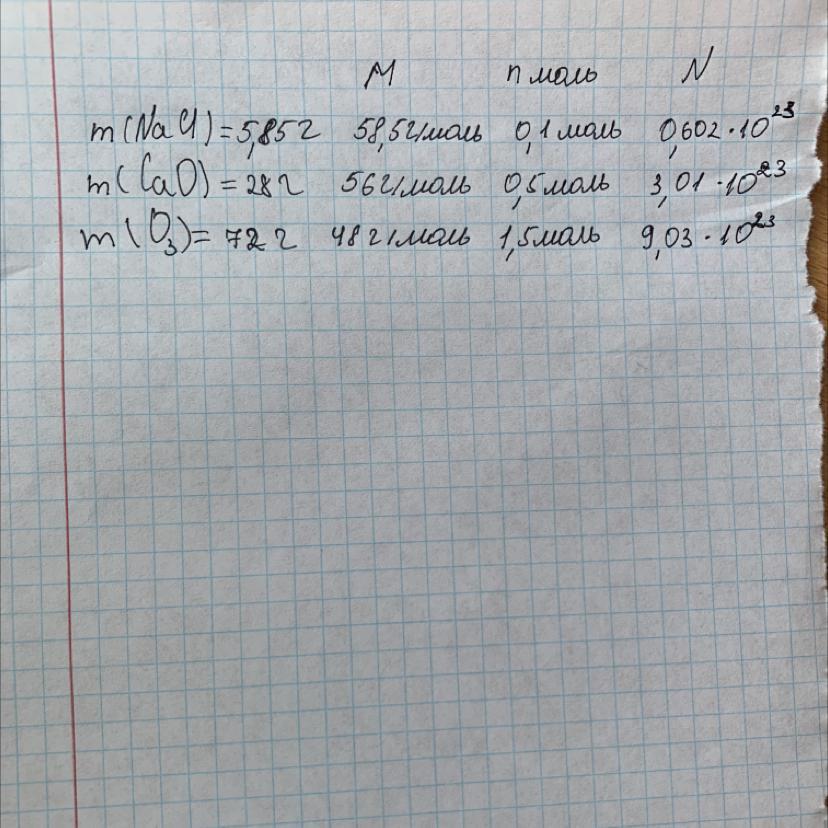 M n моль N
m(NaCl)=5,85г 58,5г/моль 0,1моль 0,602·10²³
m(CaO)=28г 56г/моль 0,5моль 3,01·10²³
m(O₃)=72г 48г/моль 1,5моль 9,03·10²³